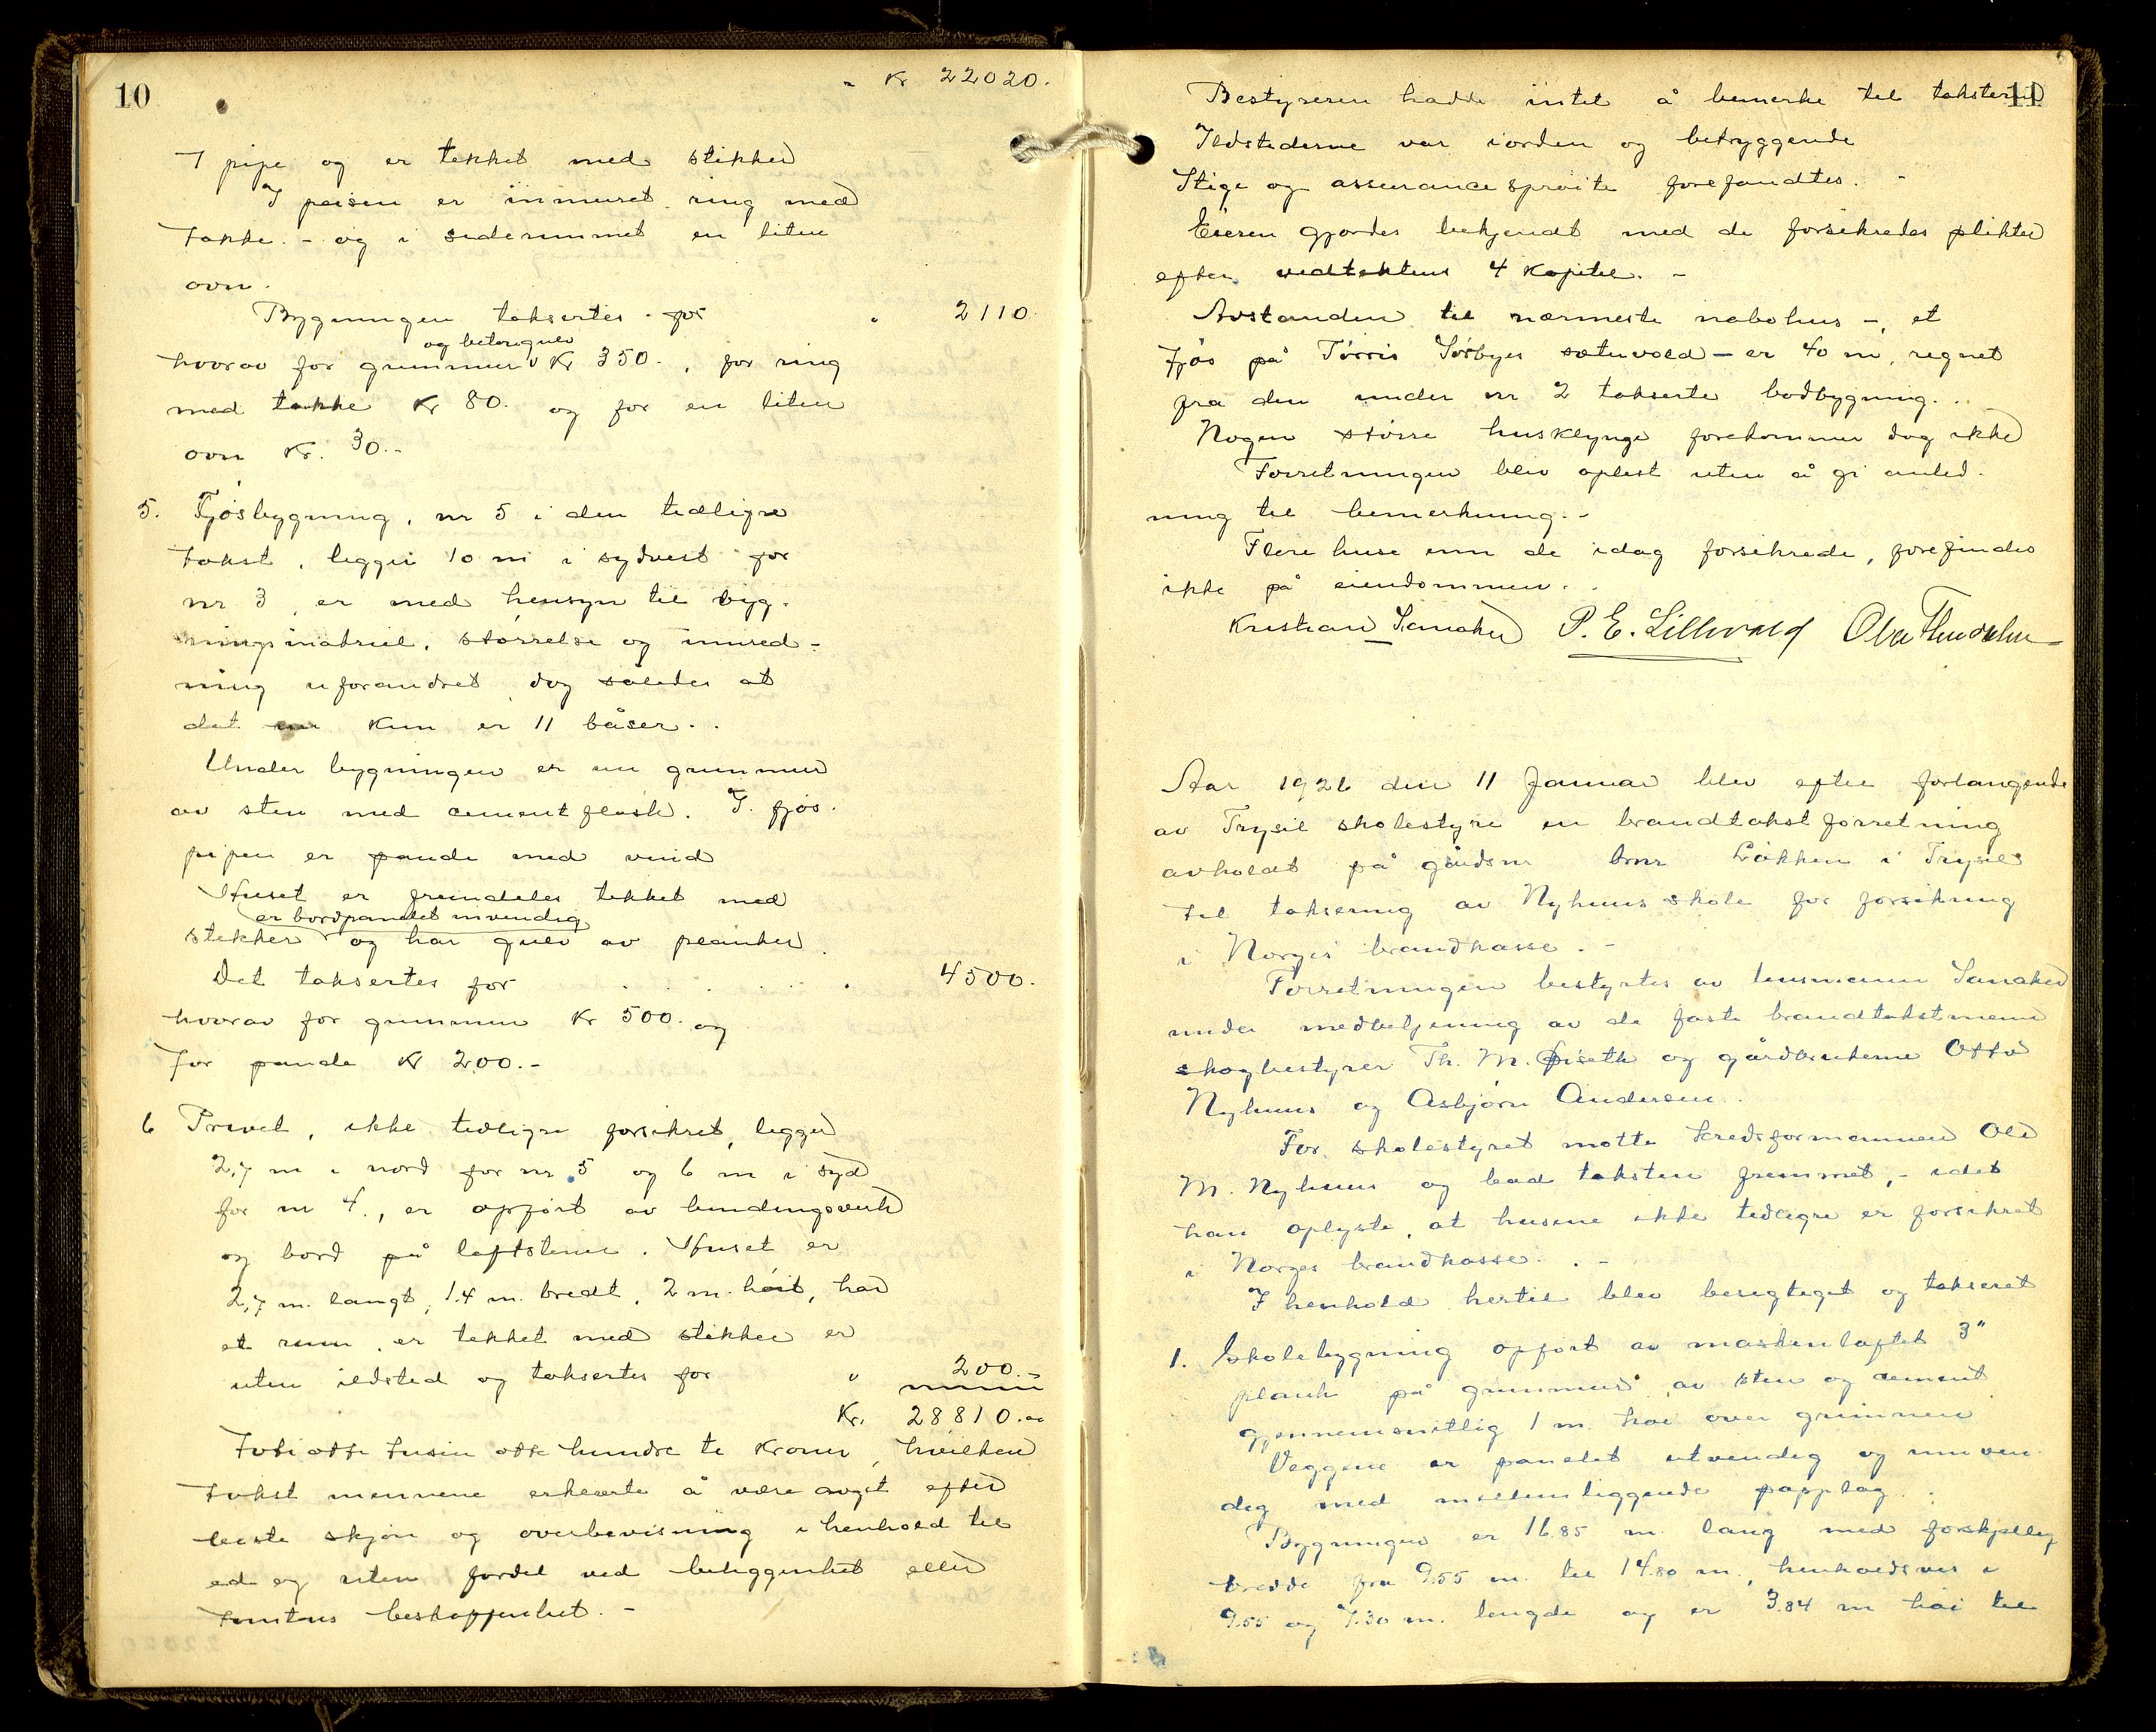 10
- Kr 22020.
1 pipe og er tekket med stikker
I peisen er innmuret ring med
takke. - og i siderummet en liten
ovn.
Bygningen taksertes for " 2110
og betongulv
hvorav for grunnmur Kr 350., for ring
med takke Kr 80. og for en liten
ovn Kr. 30.-
5. Fjøsbygning, nr 5 i den tidligre
takst, ligger 10 m i sydvest for
nr 3, er med hensyn til byg-
ningsmatriel, størrelse og innred-
ning uforandret dog således at
det nu kun er 11 båser..
Under bygningen er nu grunnmur
av sten med cementpusk. I fjøs-
pipen er pande med vind
Huset er fremdeles tekket med
er bordpanelet invendig
stikker og har gulv av planker.
Det taksertes for . . . . . " 4500.
hvorav for grunnmur Kr 500. og
for pande Kr 200.-
6 Privet, ikke tidligre forsikret, ligger
2,7 m i nord for nr 5 og 6 m i syd
for nr 4., er opført av bindingsverk
og bord på løftstener. Huset er
2,7 m. langt, 1.4 m. bredt, 2 m. høit, har
et rum, er tekket med stikker er
uten ildsted og taksertes for " 200.-
Kr. 28810.oo
Toti otte tusin otte hundre ti Kroner, hvilken
takst mennene erklærte å være avgit efter
beste skjøn og overbevisning i henhold til
ed og uten fordel ved beliggenhet eller
tomtens beskaffenhet. -
11
Bestyreren hadde intet å bemerke til taksterne
Ildstederne var iorden og betryggende
Stige og assurancesprøite forefandtes. -
Eieren gjordes bekjendt med de forsikredes plikter
efter vedtektens 4 Kapitel. -
Avstanden til nærmeste nabohus -, et
fjøs på Tørris Sørbyes sætervold - er 40 m, regnet
fra den under nr 2 takserte bodbygning...
Nogen større husklynge forekommer dog ikke
Forretningen blev oplest uten å gi anled-
ning til bemerkning.-
Flere huse enn de idag forsikrede, forefindes
ikke på eiendommen..
Kristian Sanaker P. E. Lillevold Ola
Aar 1926 den 11 Januar blev efter forlangende
av Trysil skolestyre en brandtakstforretning
avholdt på gårdsnr brnr Løkken i Trysil
til taksering av Nyhuus skole for forsikring
i Norges brandkasse. -
Forretningen bestyrtes av lensmann Sanaker
under medbetjening av de faste brandtakstmenn
skogbestyrer Th. M. Øiseth og gårdbrukerne Otto
Nyhuus og Asbjørn Andersen.
For skolestyret møtte kredsformannen Ole
M. Nyhuus og bad taksten fremmet, - idet
han oplyste, at husene ikke tidligre er forsikret
i Norges brandkasse. . -
I henhold hertil blev besigtiget og taksert
1. Skolebygning opført av maskenlaftet 3"
plank på grunnmur av sten og cement
gjennemsnitlig 1 m. høi over grunnen
Veggene er panelet utvendig og innven
dig med mellemliggende papplag..
Bygningen er 16.85 m. lang med forskjellig
bredde fra 9.55 m. til 14.80 m., henholdsvis i
9.55 og 7.30 m. lengde og er 3.84 m høi til